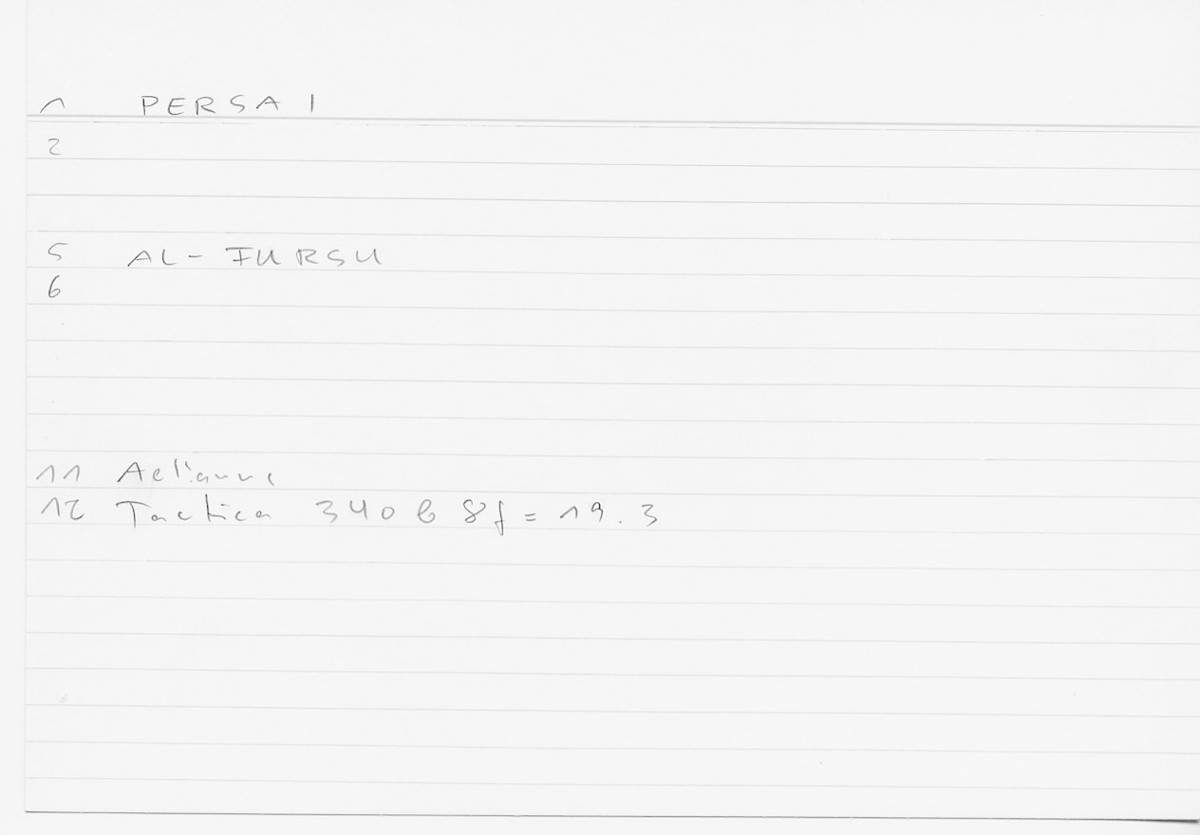 1 PERSAI
2
5 AL-FURSU
6
11 Aelianus
12 Tactica 340 b 8f = 19.3